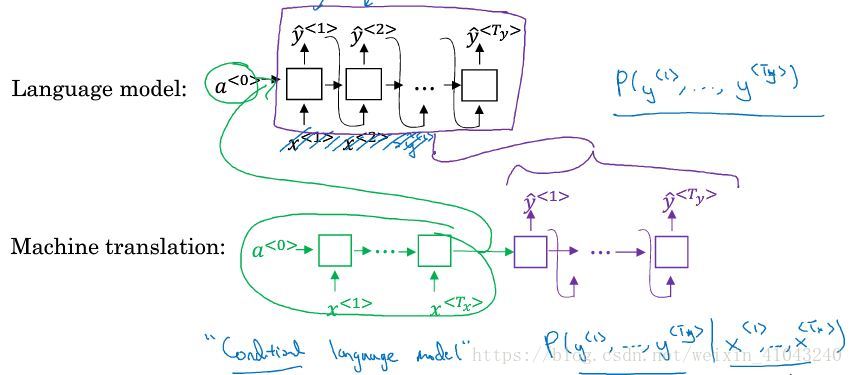 ŷ<1> ŷ<2> ŷ<Ty>
Language model: a<0> ...
P(y<1>, ..., y<Ty>)
x<1> x<2>
ŷ<1> ŷ<Ty>
Machine translation: a<0> ... ...
x<1> x<Tx>
"Conditional language model" P(y<1>, ..., y<Ty> | x<1>, ..., x<Tx>)
https://blog.csdn.net/weixin_41043240